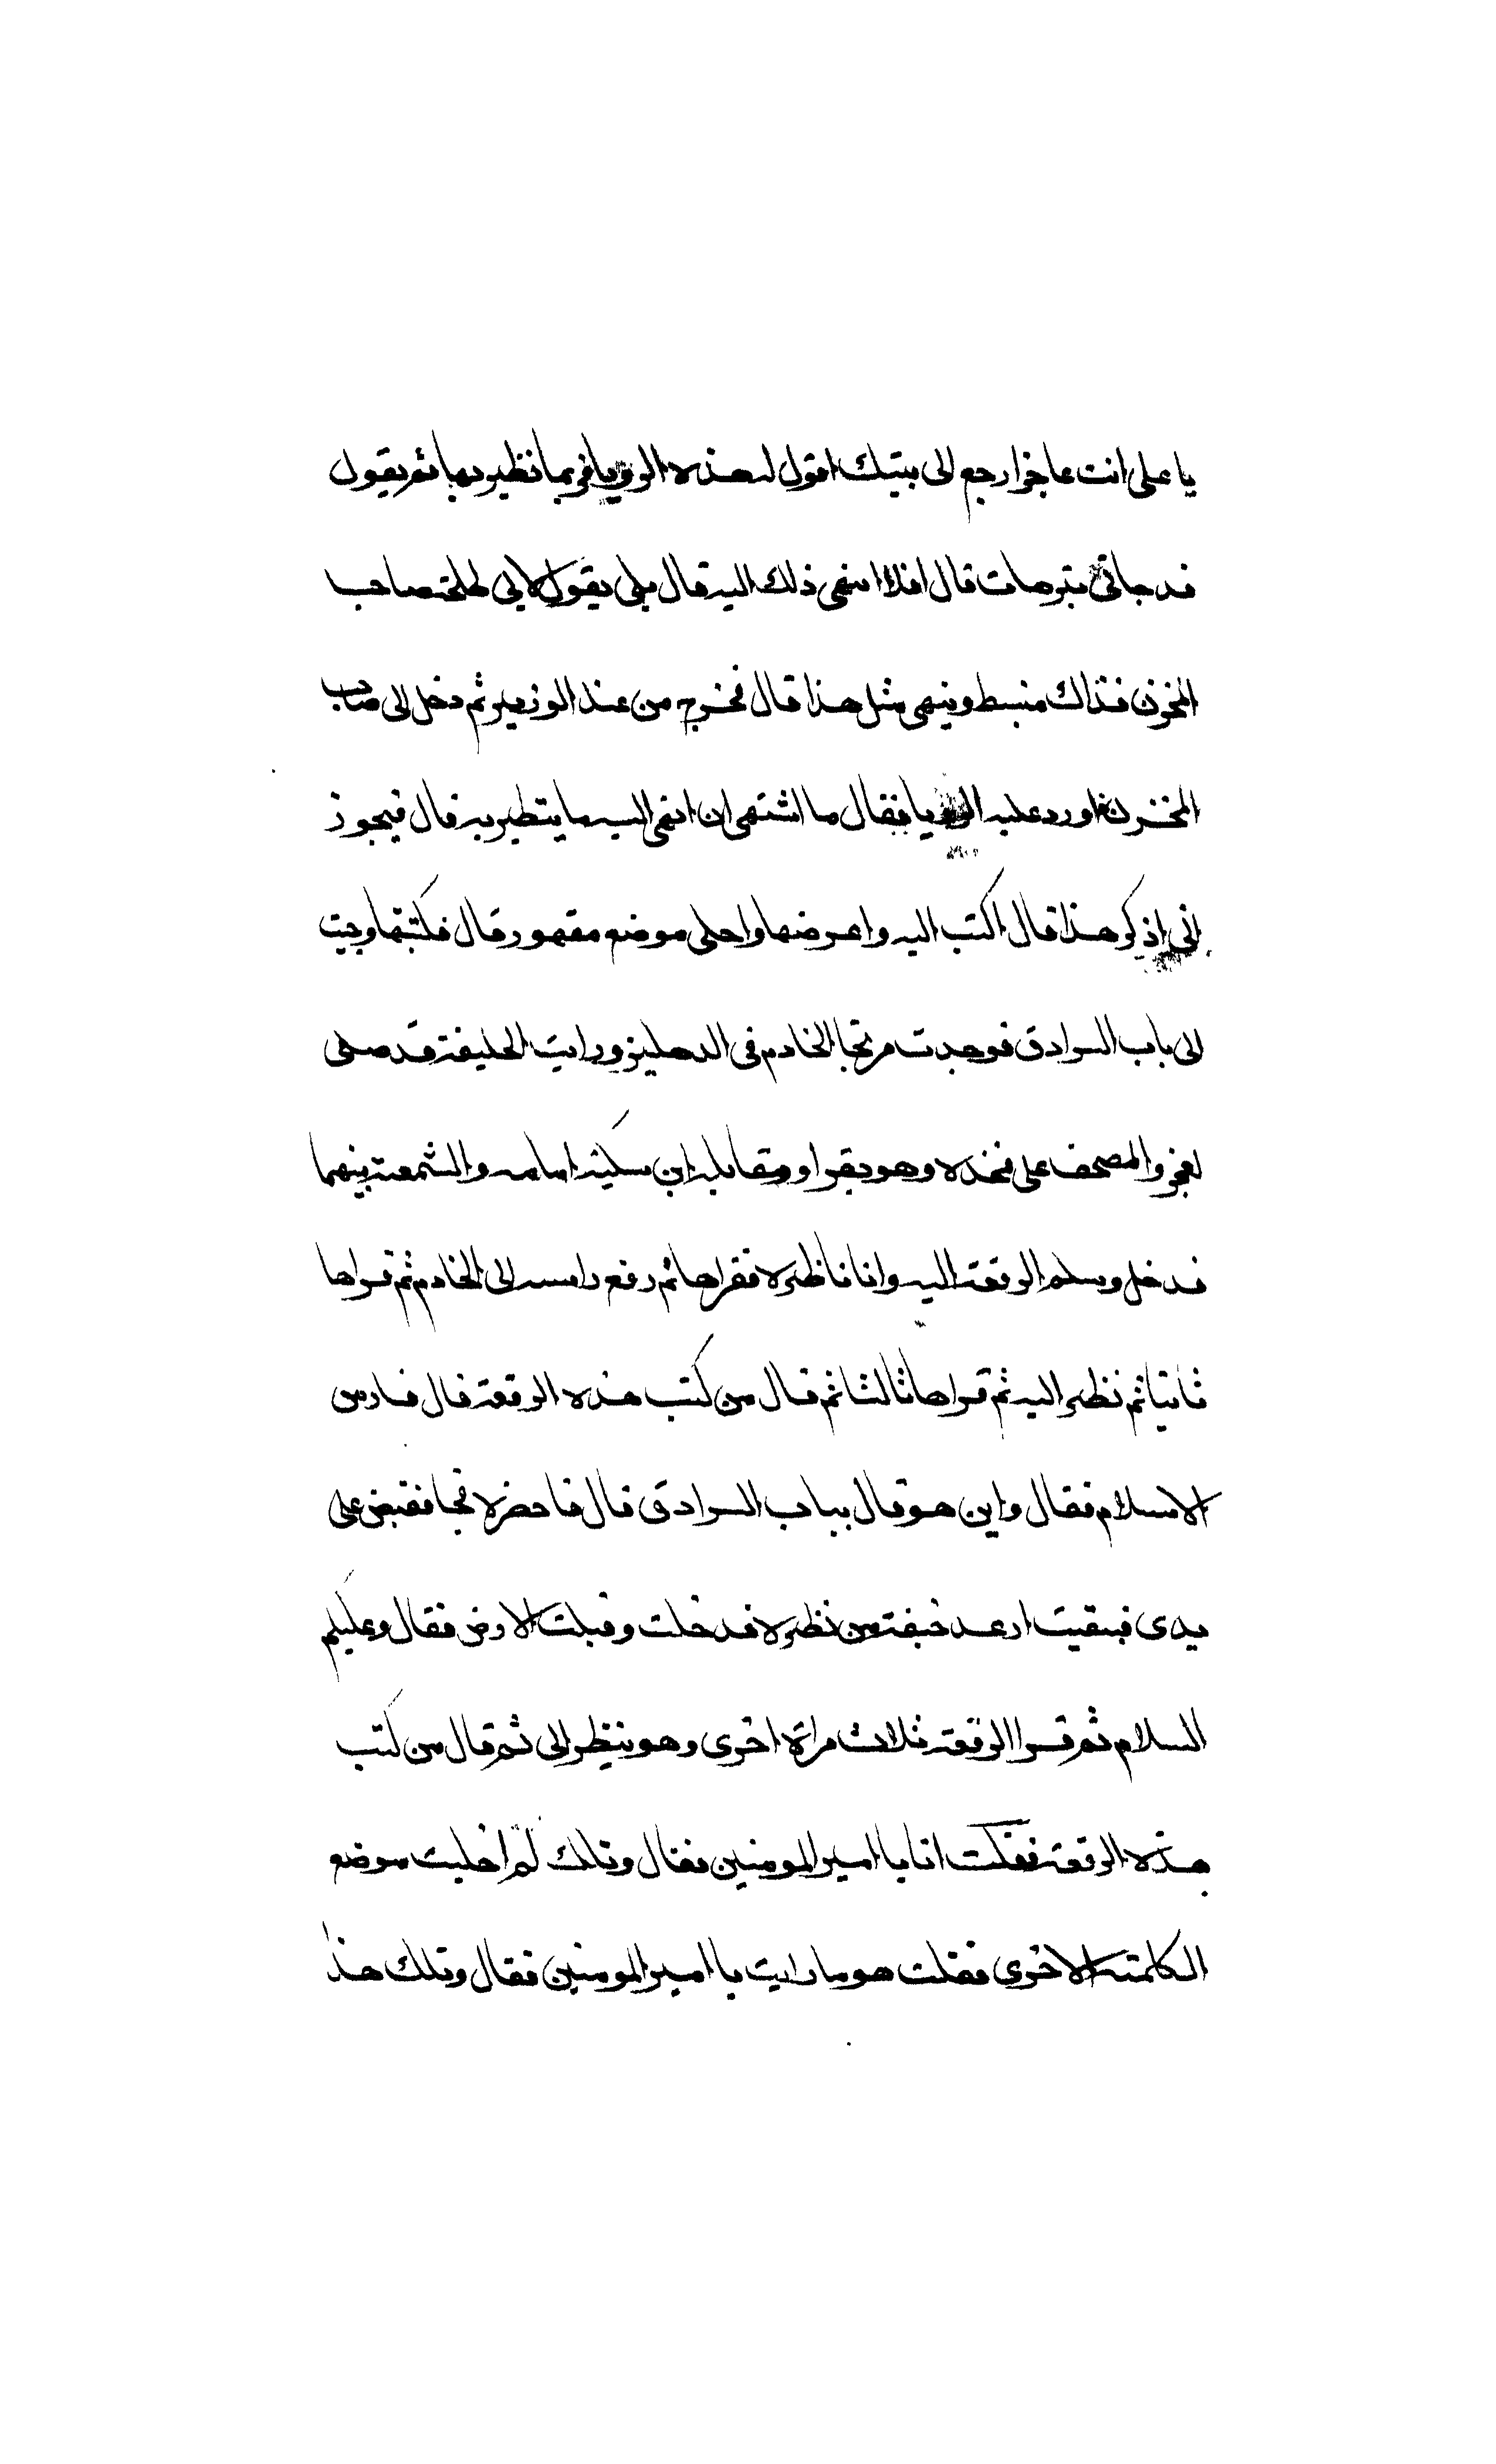 يا على انت عاجز ارجع الى بيتك اقول له هذه الرويا فربما نظير بها ثم يقول
قد جاتى بترهات قال افلا انهى ذلك اليه قال بلى يقول لابى طلحة صاحب
المخزن فذاك منبسط وينهى مثل هذا قال فخرج من عند الوزير ثم دخل الى صاحب
المخزن فاورد عليه الرويا فقال ما اشتهى ان انهى اليه ما يتطير به قال فيجوز
انى اذكر هذا قال اكتب اليه واعرضها واحلى موضع مقهور قال فكتبتها وجيت
الى باب السرادق فوجدت مرتجا الخادم فى الدهليز ورايت الخليفة قد صلى
الفجر والمصحف على فخذه وهو يقرا ومقابله ابن سكينه امامه والشمعة بينهما
فدخل وسلم الرقعة اليه وانا ناظره فقراها ثم رفع راسه الى الخادم ثم قراها
ثانيا ثم نظر اليه ثم قراها ثالثا ثم قال من كتب هذه الرقعة قال فارس
الاسلام فقال واين هو قال بباب السرادق قال فاحضره فجا فقبض على
يدى فبقيت ارعد خيفة من نظره فدخلت وقبلت الارض فقال وعليكم
السلام ثم قرا الرقعة ثلاث مراة اخرى وهو ينظر الى ثم قال من كتب
هذه الرقعة فقلت انا يا امير المومنين فقال ويلك لم اخليت موضع
الكلمة الاخرى فقلت هو ما رايت يا امير المومنين فقال ويلك هذا